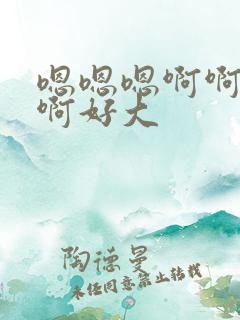 嗯嗯嗯啊啊
啊好大
陶德曼
未经同意禁止转载